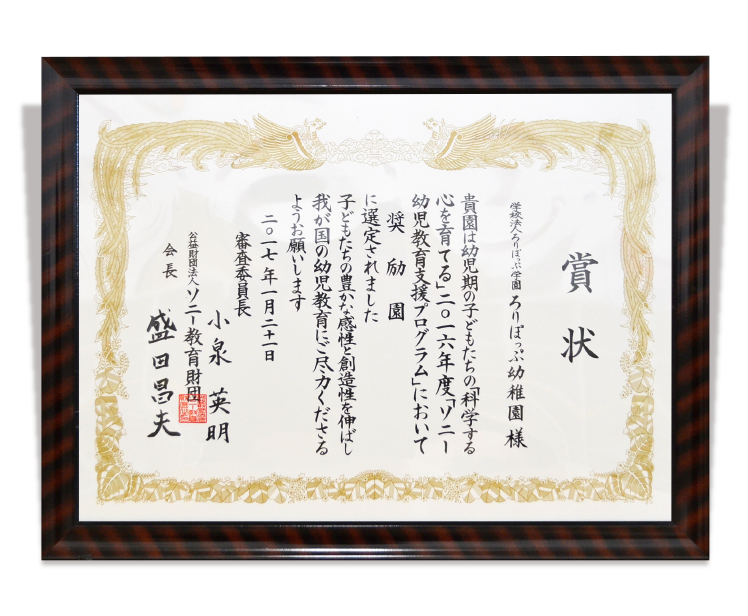 賞状
学校法人ろりぽっぷ学園 ろりぽっぷ幼稚園 様
貴園は幼児期の子どもたちの「科学する
心を育てる」二〇一六年度「ソニー
幼児教育支援プログラム」において
奨励園
に選定されました
子どもたちの豊かな感性と創造性を伸ばし
我が国の幼児教育にご尽力くださる
ようお願いします
二〇一七年一月二十一日
審査委員長 小泉 英明
公益財団法人 ソニー教育財団
会長 盛田昌夫